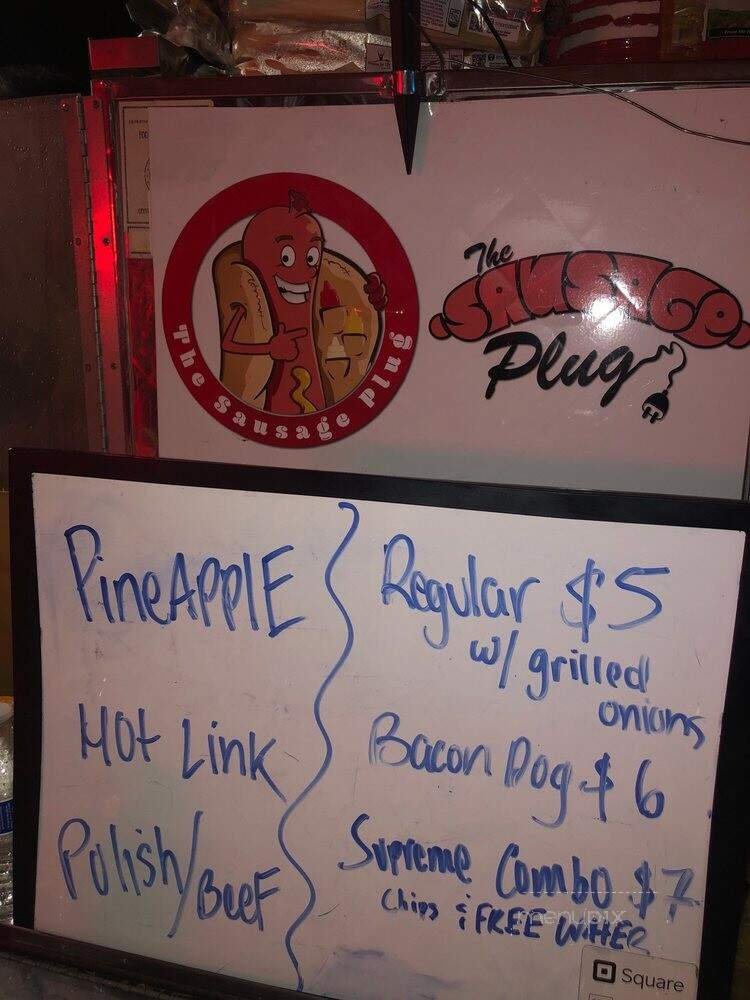 The Sausage Plug
The
SAUSAGE
Plug
PineAPPlE
Hot Link
Polish/BeeF
Regular $5
w/ grilled
onions
Bacon Dog $6
Supreme Combo $7
Chips & FREE WATER
menupix
Square